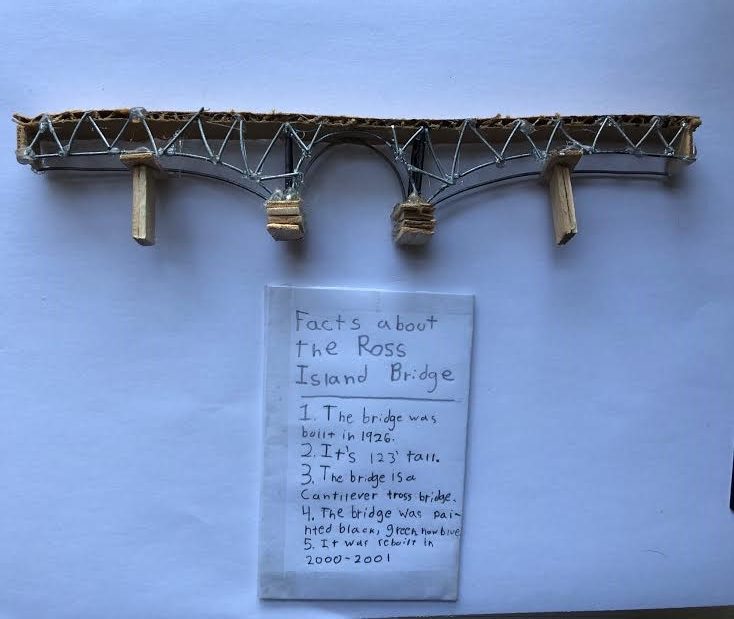 Facts about
the Ross
Island Bridge
1. The bridge was
built in 1926.
2. It's 123' tall.
3. The bridge is a
Cantilever tross bridge.
4. The bridge was pai-
nted black, green now blue
5. It was rebuilt in
2000-2001